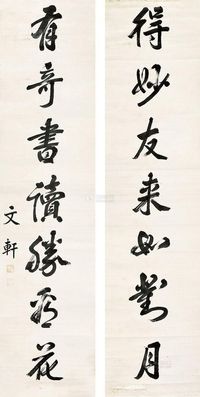 得妙友来如對月
有奇書讀勝看花
文軒